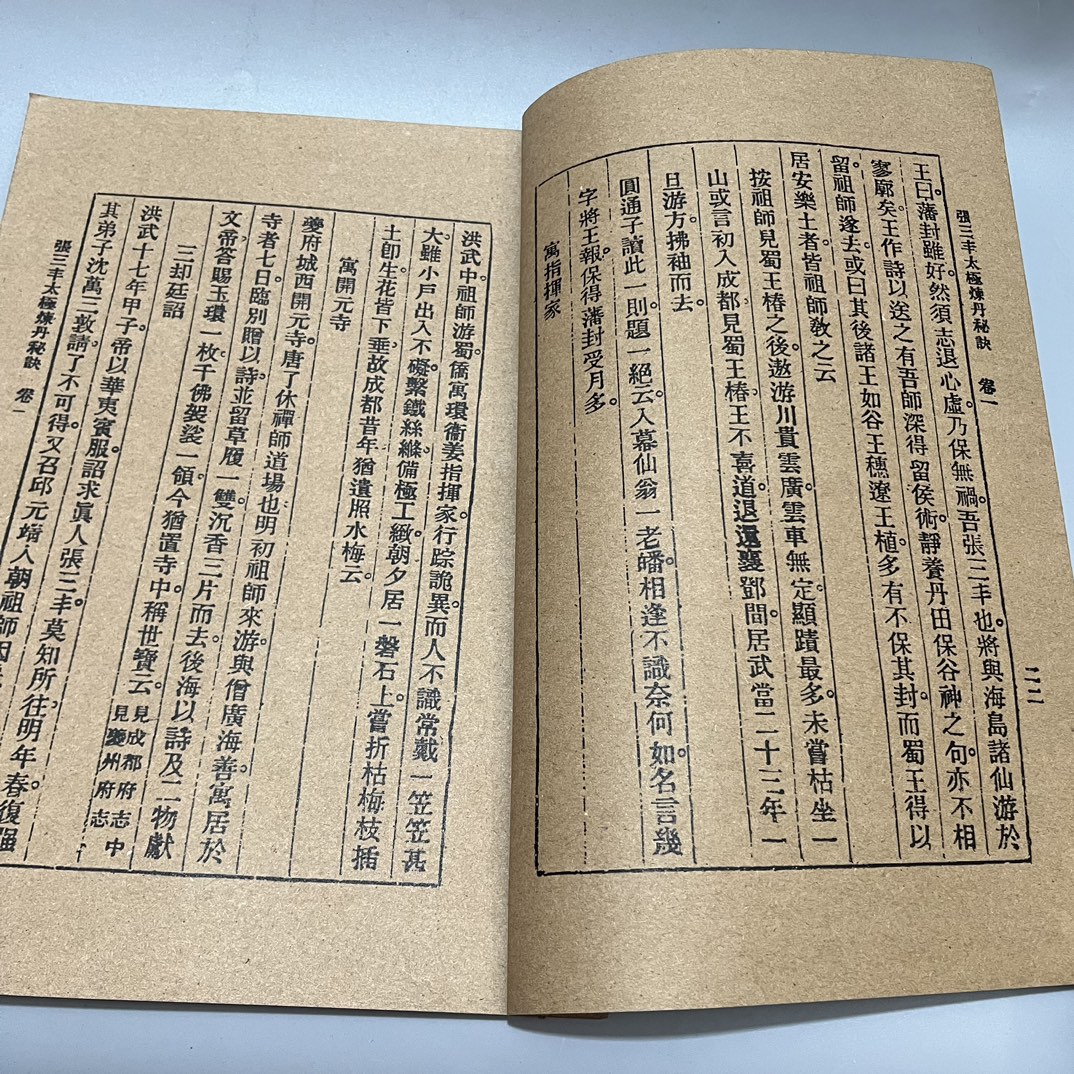 張三丰太極煉丹秘訣 卷一
二二
王曰。藩封雖好。然須志退心虛。乃保無禍。吾張三丰也。將與海島諸仙游於
寥廓矣。王作詩以送之。有吾師深得留侯術。靜養丹田保谷神之句。亦不相
留。祖師遂去。或曰其後諸王如谷王橞遼王植。多有不保其封。而蜀王得以
居安樂土者。皆祖師敎之云
按祖師見蜀王椿之後。遨游川貴雲廣。雲車無定。顯蹟最多。未嘗枯坐一
山。或言初入成都見蜀王椿。王不喜道。退還襄鄧間。居武當二十三年。一
旦游方。拂袖而去。
圓通子讀此一則。題一絕云。入幕仙翁一老皤。相逢不識奈何。如名言幾
字將王報。保得藩封受月多。
寓指揮家
洪武中。祖師游蜀。僑寓環衞姜指揮家。行踪詭異。而人不識。常戴一笠。笠甚
大。雖小戶出入不礙。繫鐵絲縧。備極工緻。朝夕居一磐石上。嘗折枯梅枝插
土。卽生花皆下垂。故成都昔年猶遺照水梅云。
寓開元寺
夔府城西開元寺。唐了休禪師道場也。明初祖師來游。與僧廣海善。寓居於
寺者七日。臨別贈以詩。並留草履一雙。沉香三片而去。後海以詩及二物獻
文帝。答賜玉環一枚。千佛袈裟一領。今猶置寺中。稱世寶云。見成都府志中
見夔州府志
三却廷詔
洪武十七年甲子。帝以華夷賓服。詔求眞人張三丰。莫知所往。明年春。復强
其弟子沈萬三敦請。了不可得。又召邱元靖入朝。祖師因
張三丰太極煉丹秘訣 卷一